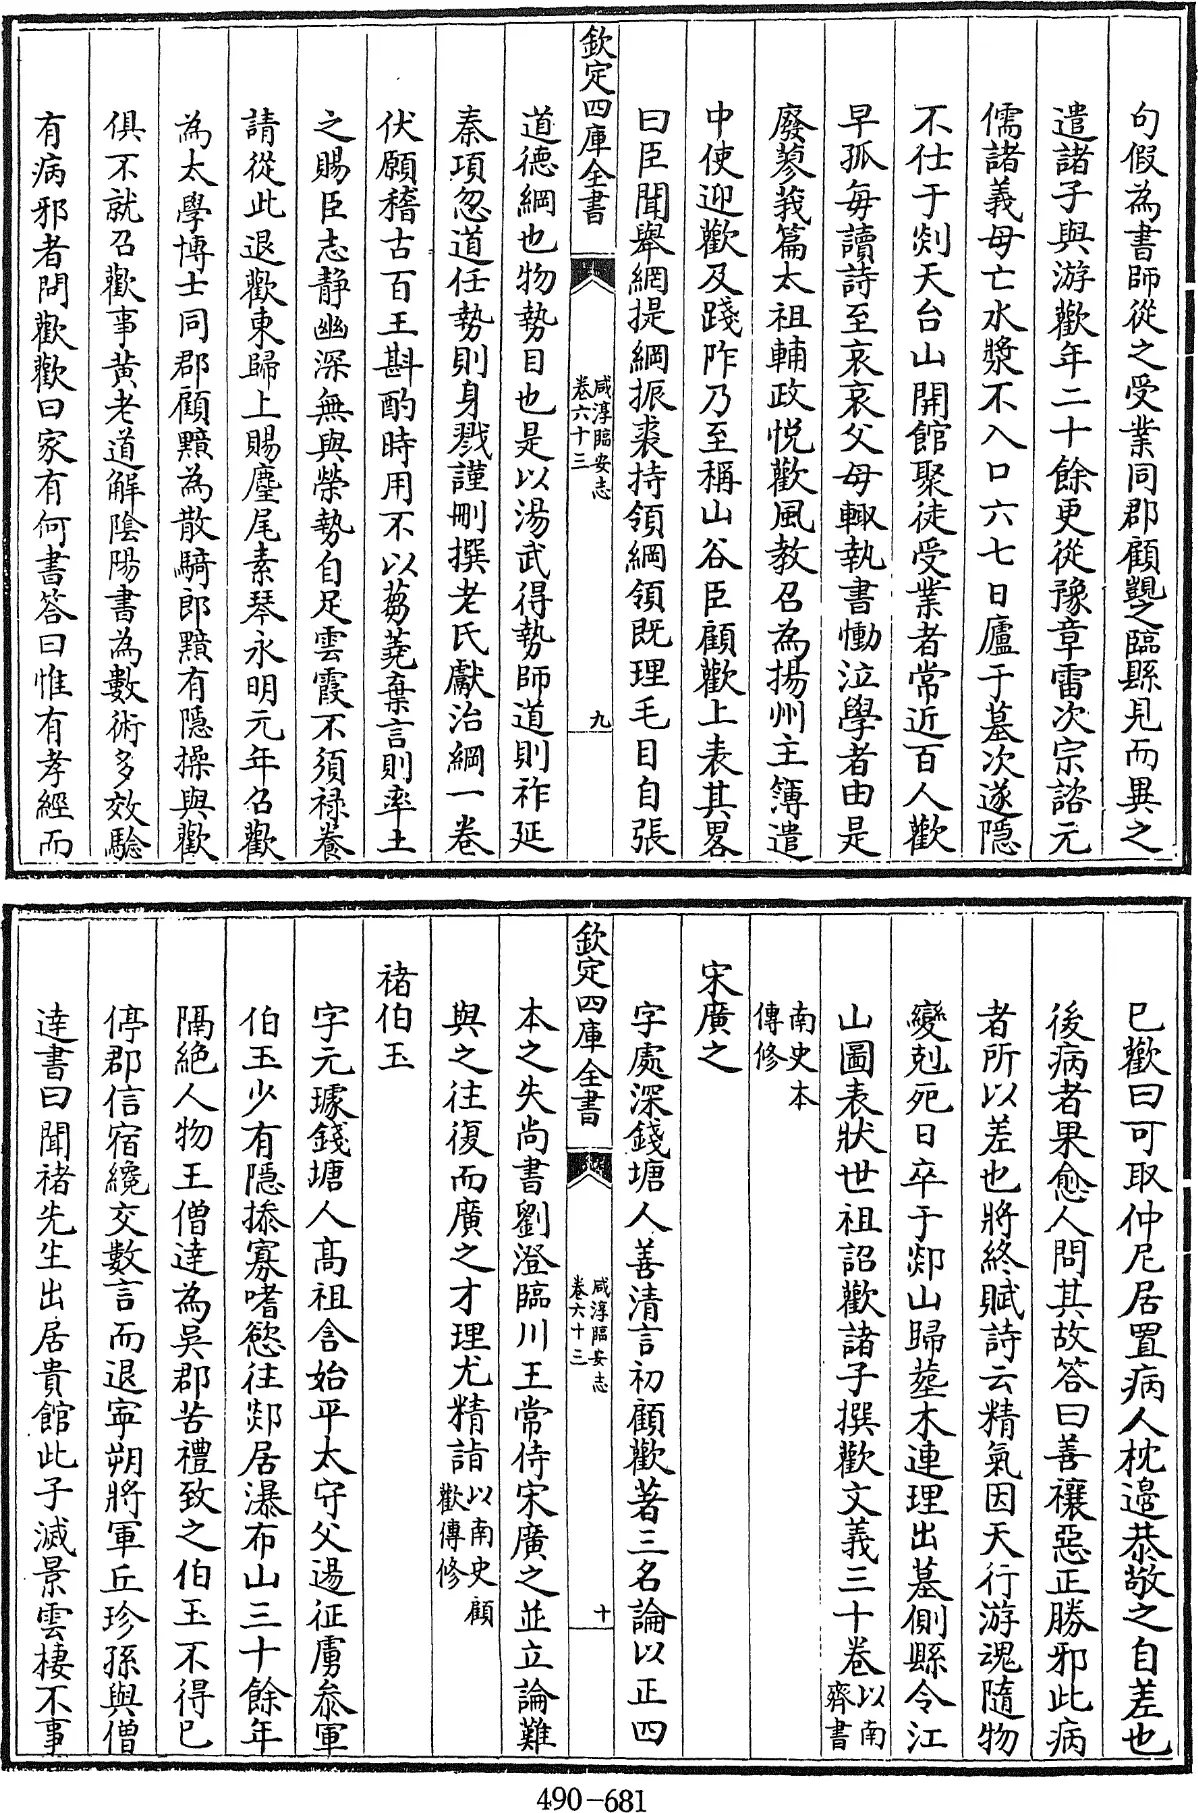 句假為書師從之受業同郡顧覬之臨縣見而異之
遣諸子與游歡年二十餘更從豫章雷次宗諮元
儒諸義母亡水漿不入口六七日廬于墓次遂隱
不仕于剡天台山開館聚徒受業者常近百人歡
早孤每讀詩至哀哀父母輙執書慟泣學者由是
廢蓼莪篇太祖輔政悦歡風教召為揚州主簿遣
中使迎歡及踐阼乃至稱山谷臣顧歡上表其畧
曰臣聞舉網提綱振裘持領綱領既理毛目自張
欽定四庫全書
咸淳臨安志
卷六十三
九
道德綱也物勢目也是以湯武得勢師道則祚延
秦項忽道任勢則身戮謹刪撰老氏獻治綱一卷
伏願稽古百王斟酌時用不以芻蕘棄言則率土
之賜臣志静幽深無與榮勢自足雲霞不須祿養
請從此退歡東歸上賜麈尾素琴永明元年召歡
為太學博士同郡顧黯為散騎郎黯有隱操與歡
俱不就召歡事黄老道解陰陽書為數術多效驗
有病邪者問歡歡曰家有何書答曰惟有孝經而
已歡曰可取仲尼居置病人枕邉恭敬之自差也
後病者果愈人問其故答曰善禳惡正勝邪此病
者所以差也將終賦詩云精氣因天行游魂隨物
變剋死日卒于剡山歸塟木連理出墓側縣令江
山圖表狀世祖詔歡諸子撰歡文義三十卷以南
齊書
南史本
傳修
宋廣之
字處深錢塘人善清言初顧歡著三名論以正四
欽定四庫全書
咸淳臨安志
卷六十三
十
本之失尚書劉澄臨川王常侍宋廣之並立論難
與之往復而廣之才理尤精詣以南史顧
歡傳修
禇伯玉
字元璩錢塘人高祖含始平太守父逷征虜叅軍
伯玉少有隱掭寡嗜慾往剡居瀑布山三十餘年
隔絶人物王僧逹為吳郡苦禮致之伯玉不得已
停郡信宿纔交數言而退寕朔將軍丘珍孫與僧
逹書曰聞禇先生出居貴館此子滅景雲棲不事
490-681